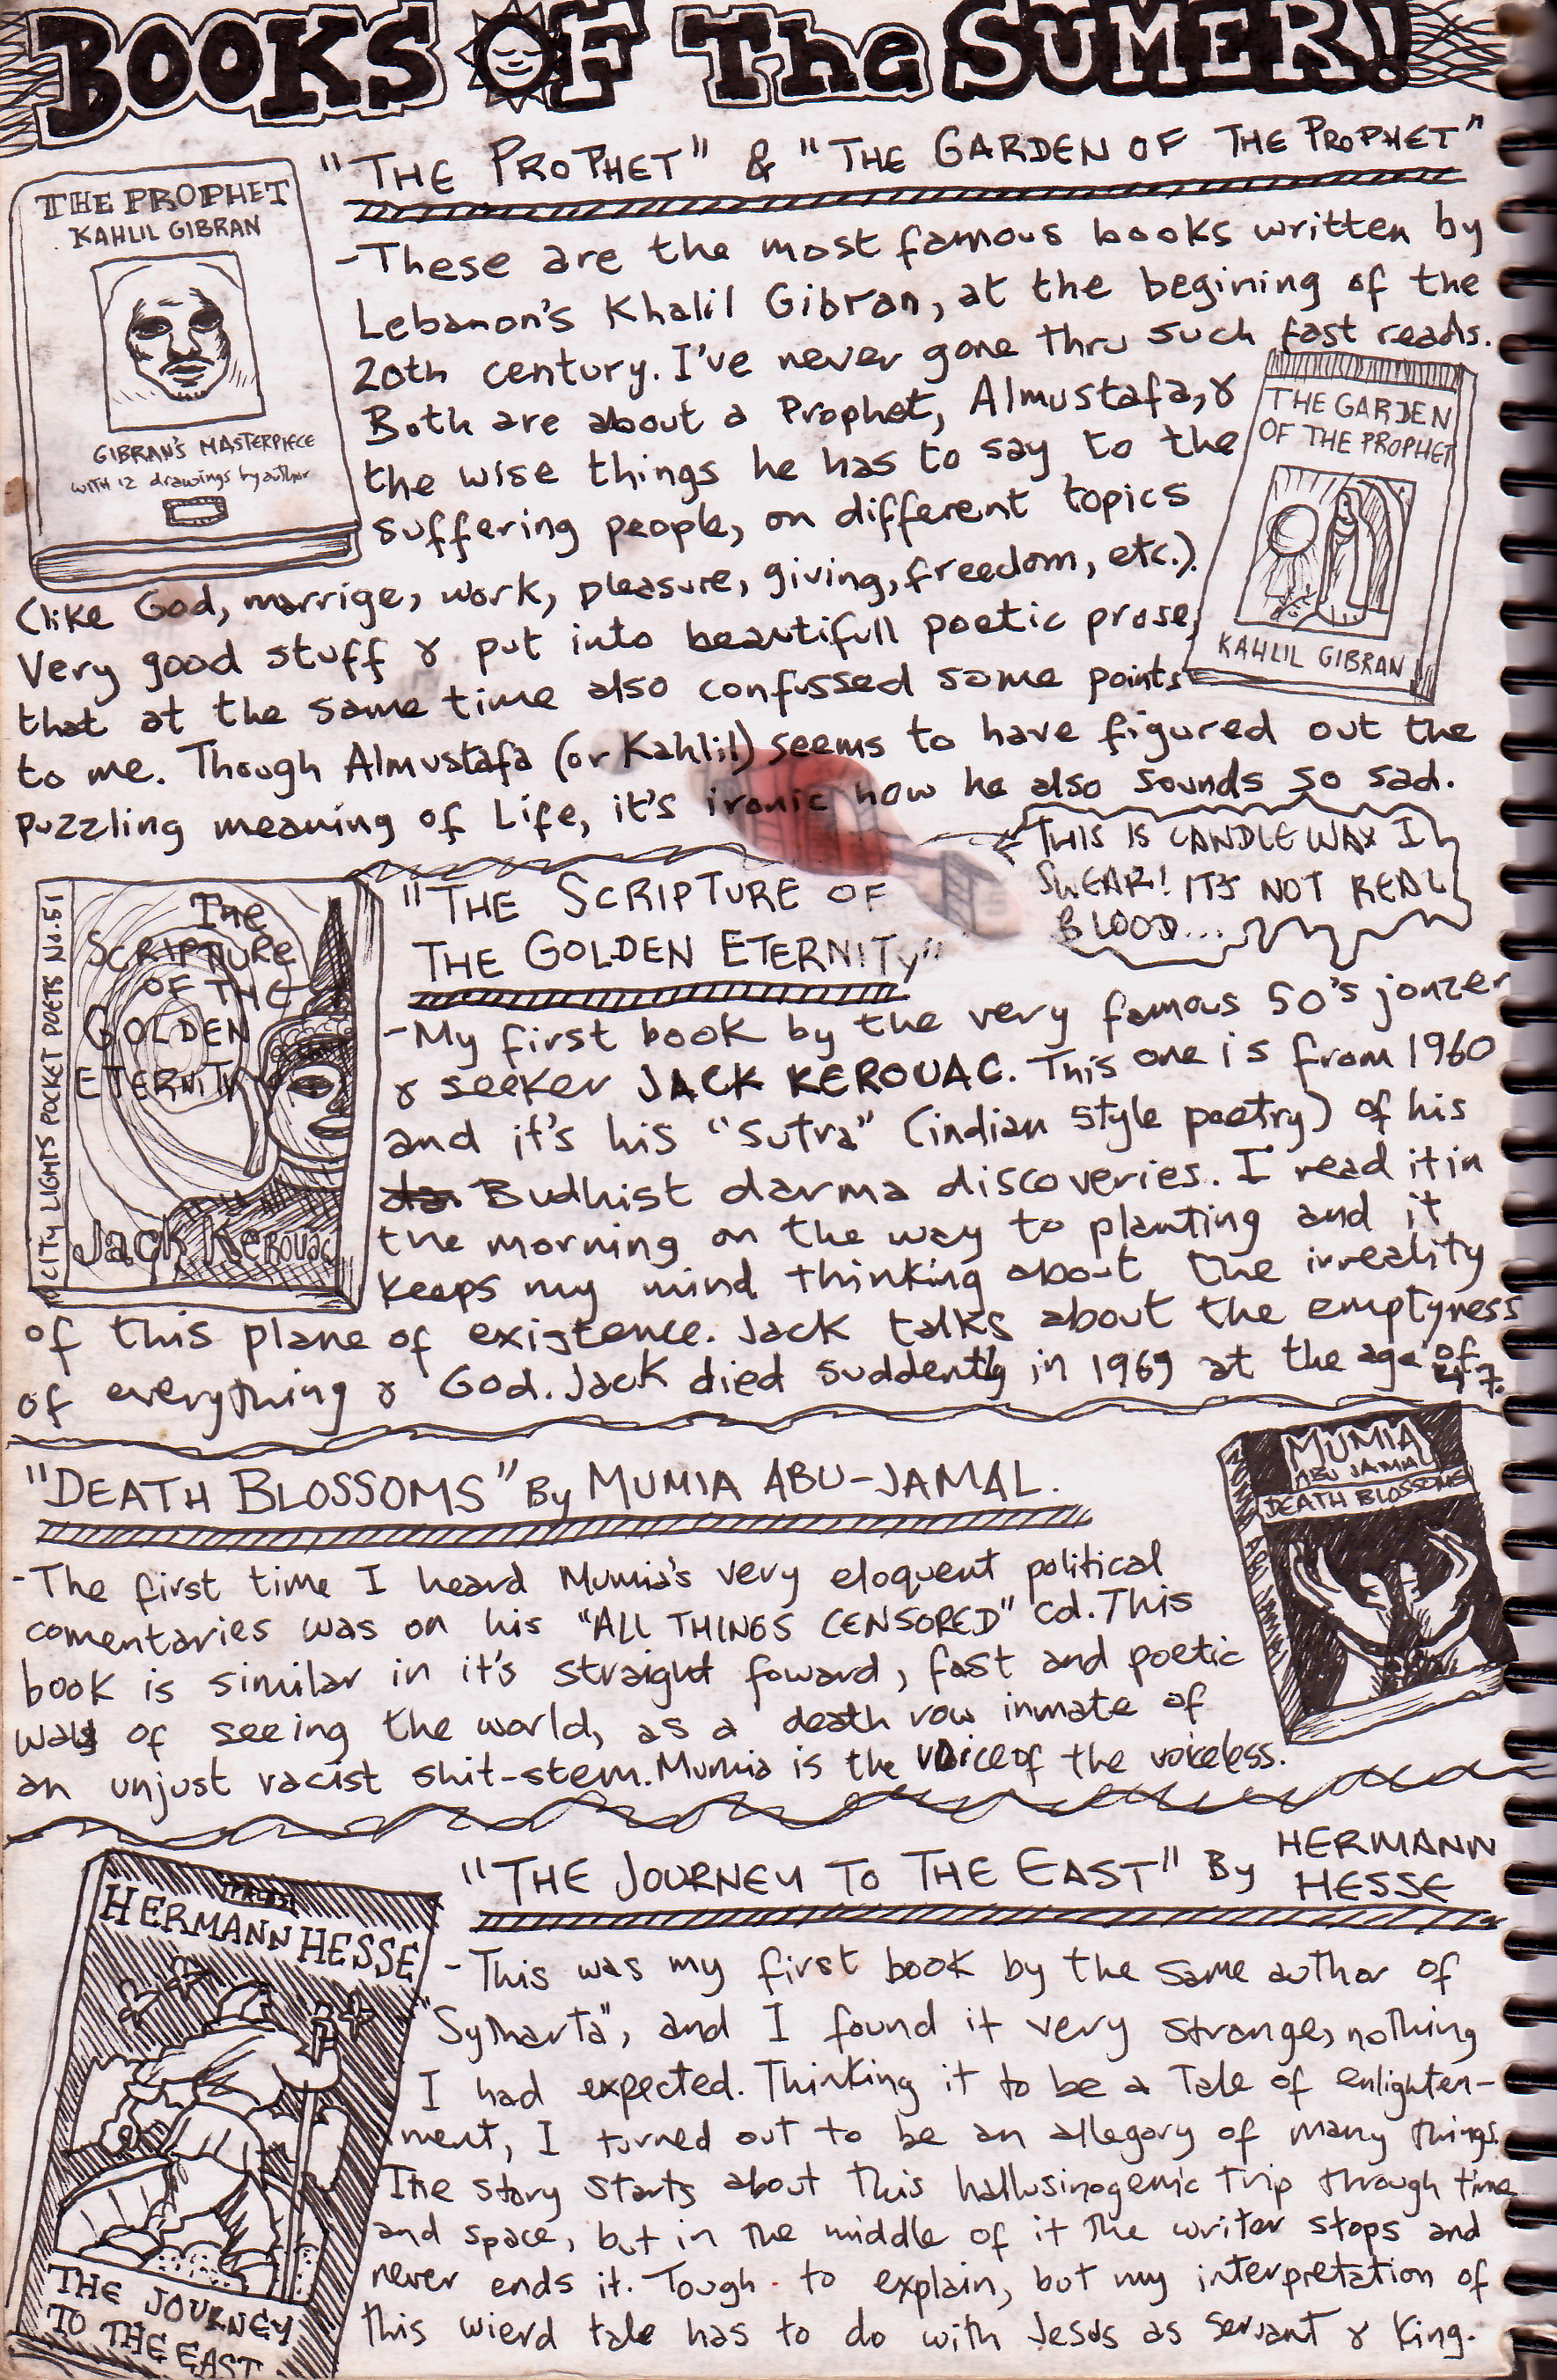 BOOKS OF The SUMER!
"THE PROPHET" & "THE GARDEN OF THE PROPHET"
THE PROPHET
KAHLIL GIBRAN
GIBRAN'S MASTERPIECE
WITH 12 drawings by author
-These are the most famous books written by
Lebanon's Khalil Gibran, at the begining of the
20th century. I've never gone thru such fast reads.
Both are about a Prophet, Almustafa, &
the wise things he has to say to the
suffering people, on different topics
(like God, marrige, work, pleasure, giving, freedom, etc.).
Very good stuff & put into beautifull poetic prose,
that at the same time also confussed some points
to me. Though Almustafa (or Kahlil) seems to have figured out the
puzzling meaning of Life, it's ironic how he also sounds so sad.
THE GARDEN
OF THE PROPHET
KAHLIL GIBRAN
THIS IS CANDLE WAX I
SWEAR! IT'S NOT REAL
BLOOD...
"THE SCRIPTURE OF
THE GOLDEN ETERNITY"
CITY LIGHTS POCKET POETS No.51
The
SCRIPTURE
OF THE
GOLDEN
ETERNITY
Jack Kerouac
-My first book by the very famous 50's jonzer
& seeker JACK KEROUAC. This one is from 1960
and it's his "Sutra" (indian style poetry) of his
Budhist darma discoveries. I read it in
the morning on the way to planting and it
keeps my mind thinking about the irreality
of this plane of existence. Jack talks about the emptyness
of everything & God. Jack died suddently in 1969 at the age of
47.
"DEATH BLOSSOMS" By MUMIA ABU-JAMAL.
MUMIA
ABU JAMAL
DEATH BLOSSOMS
-The first time I heard Mumia's very eloquent political
comentaries was on his "ALL THINGS CENSORED" cd. This
book is similar in it's straight foward, fast and poetic
ways of seeing the world, as a death row inmate of
an unjust racist shit-stem. Mumia is the voice of the voiceless.
"THE JOURNEY TO THE EAST" By HERMANN
HESSE
HERMANN HESSE
THE JOURNEY
TO THE EAST
-This was my first book by the same author of
"Sytharta", and I found it very strange, nothing
I had expected. Thinking it to be a Tale of enlighten-
ment, I turned out to be an allegory of many things.
The story starts about this hallusinogenic trip through time
and space, but in the middle of it the writer stops and
never ends it. Tough to explain, but my interpretation of
this wierd tale has to do with Jesus as servant & King.